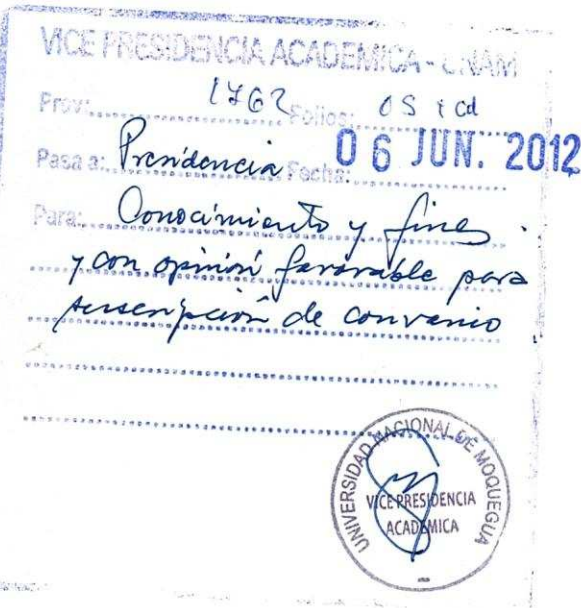 VICE PRESIDENCIA ACADEMICA - UNAM
Prov: 1762 Folios: 05 + Cd
Pasa a: Presidencia Fecha: 06 JUN. 2012
Para: Conocimiento y fines
y con opinión favorable para
suscripción de convenio
UNIVERSIDAD NACIONAL DE MOQUEGUA
VICE PRESIDENCIA
ACADEMICA